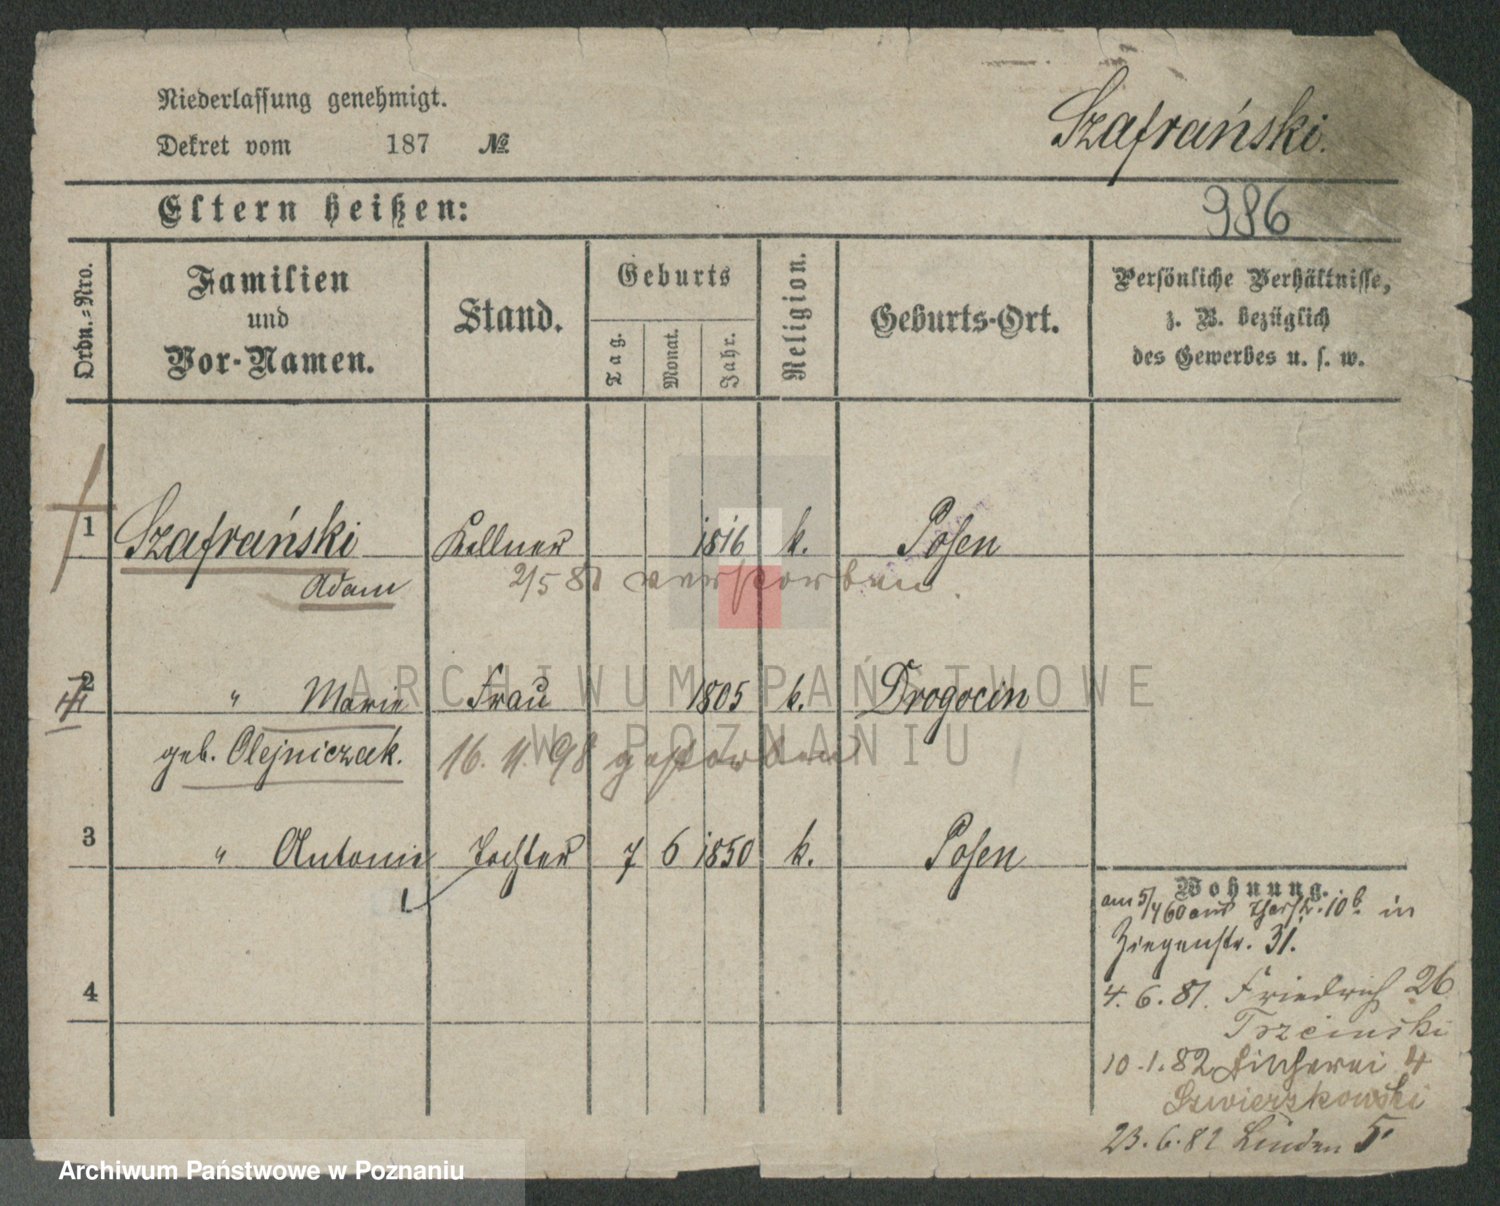 Niederlassung genehmigt.
Dekret vom 187 №
Szafrański.
Eltern heißen:
986
Ordn.=Nro.
Familien
und
Vor-Namen.
Stand.
Geburts
Tag.
Monat.
Jahr.
Religion.
Geburts-Ort.
Persönliche Verhältnisse,
z. B. bezüglich
des Gewerbes u. s. w.
1 Szafrański Kellner 1816 k. Posen
Adam 2/5 81 verstorben.
2 " Marie Frau 1805 k. Drogocin
geb. Olejniczak. 16. 11. 98 gestorben
3 " Antonie Tochter 7 6 1850 k. Posen
Wohnung.
am 5/4 60 aus 10b in
Ziegenstr. 31.
4
4. 6. 81. Friedrich 26
Trzcinski
10.1.82 Fischerei 4
Szwierzkowski
23.6.82 Linden 5
ARCHIWUM PAŃSTWOWE
W POZNANIU
Archiwum Państwowe w Poznaniu